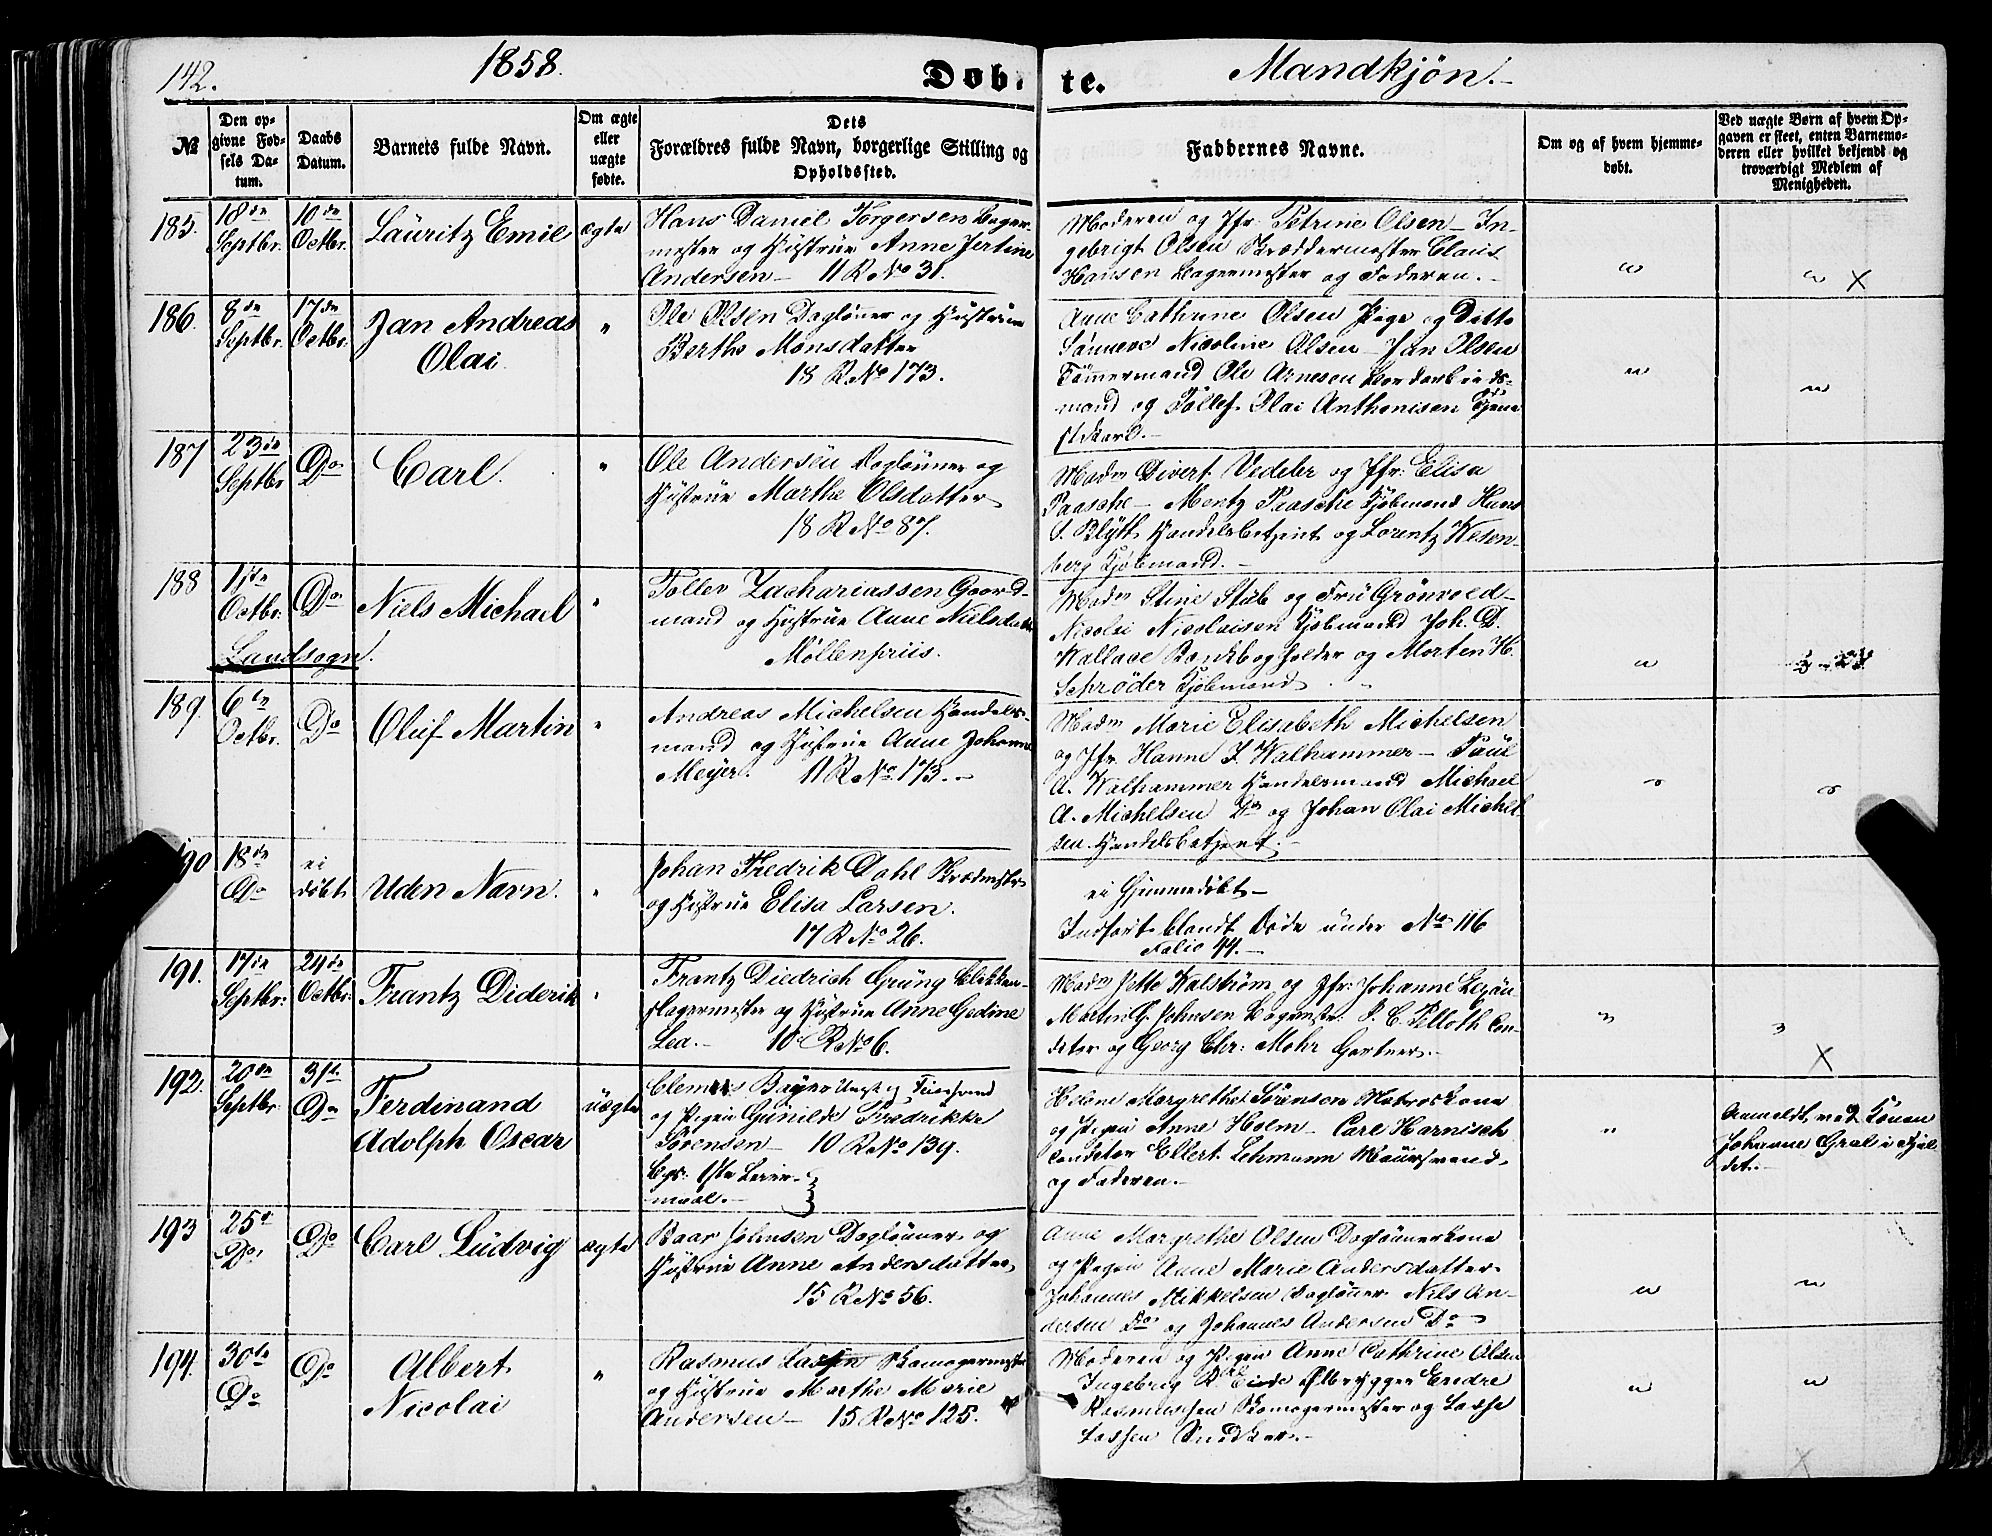 142.
1858.
Døbte.
Mandkjön.
№
Den opgivne Fødsels Datum.
Daabs Datum.
Barnets fulde Navn.
Om ægte eller uægte fødte.
Dets Forældres fulde Navn, borgerlige Stilling og Opholdssted.
Faddernes Navne.
Om og af hvem hjemmedøbt.
Ved uægte Børn af hvem Opgaven er skeet, enten Barnemoderen eller hvilket bekjendt og troværdigt Medlem af Menigheden.
185. 18de Septbr. 10de Octbr. Lauritz Emil ægte
Hans Daniel Torgersen Bager-
mester og Hustrue Anne Jertine
Andersen 11 R No 31.
Moderen og Jfr. Petrine Olsen – In-
gebrigt Olsen Skræddermester Claus
Hansen Bagermester og Faderen.
" " X
186. 8de Septbr. 17de Octbr. Jan Andreas "
Olai.
Ole Olsen Dagløner og Hustrue
Berthe Monsdatter
18 R No 173.
Anne Cathrine Olsen Pige og Ditto
Nicoline Olsen – Jan Olsen
Tømmermand Ole Arnesen
mand og Tollef Olai Anthonisen Tjene-
stekarl.
" "
187 23de Septbr Do Carl. "
Ole Andersen Dagløner og
Hustrue Marthe Olsdatter
18 R No 87.
Madm Divert Vedeler og Jfr: Elisa
Paasche – Mentz Paasche Kjøbmand Hans
S. Blytt Handelsbetjent og Lorentz Wesen-
berg Kjøbmand.
188 1ste Octbr. Do Niels Michael "
Landsogn.
Tollev Zachariassen Gaard-
mand og Hustrue Anne Nielsdatter
Møllenpriis.
Madm Stine Stub og Frü Grönvold
Nicolai Nicolaisen Kjøbmand Joh. D.
Wallace Bankbogholder og Morten H.
Schrøder Kjøbmand.
"
189. 6te Octbr. Do Oluf Martin "
Andreas Michelsen Handels-
mand og Hustrue Anne Johanne
Meyer. 11 R No 173.
Madm Marie Elisabeth Michelsen
og Jfr. Hanne J. Walhammer – Paul
A. Walhammer Handelsmand Michael
A. Michelsen Do og Johan Olai Michel-
sen Handelsbetjent.
" "
190 18de Do ei døbt Uden Navn. "
Johan Fredrik Dahl
og Hustrue Elisa Larsen.
17 R No 26.
ei Hjemmedøbt
Indført blandt Døde under No 116
Folio 44.
191. 17de Septbr: 24de Octbr: Frantz Diderik "
Frantz Diedrich Grüng Blikken-
slagermester og Hustrue Anne Gedine
Lea. 10 R No 6.
Madm Jette Walstrøm og Jfr: Johanne
Martin G. Johnsen P. C. Pelloth Con-
ditor og Georg Chr: Mohr Gartner.
" " X
192. 20de Septbr. 31te Do Ferdinand uægte
Adolph Oscar
Clemens Bøyer
og Pigen Gunilde Fredrikke
Sørensen 10 R No 139.
Bgs: 1ste Leier-
maal.
Helene Margrethe Sørensen Matroskone
og Pigen Anne Holm – Carl Harnisch
Conditor Ellert Lehmann Muurmand
og Faderen.
"
Anmeldt ved Konen
Johanne
det.
193 25de Do. Do Carl Ludvig ægte
Baar Johnsen Dagløner og
Hustrue Anne Andersdatter
15 R No 56.
Anne Margrethe Olsen Daglønerkone
og Pigen Anne Marie Andersdatter
Johannes Mikkelsen Dagløner Nils An-
dersen Do og Johannes Andersen Do
" "
194. 30te Do Do Albert "
Nicolai
Rasmus Lassen
og Hustrue Marthe Marie
Andersen – 15 R No 125.
Moderen og Pigen Anne Cathrine Olsen
Ingebrig R. Eide Ølbrygger Endre
Rasmussen og Lasse
Lassen Snedker.
" "
X